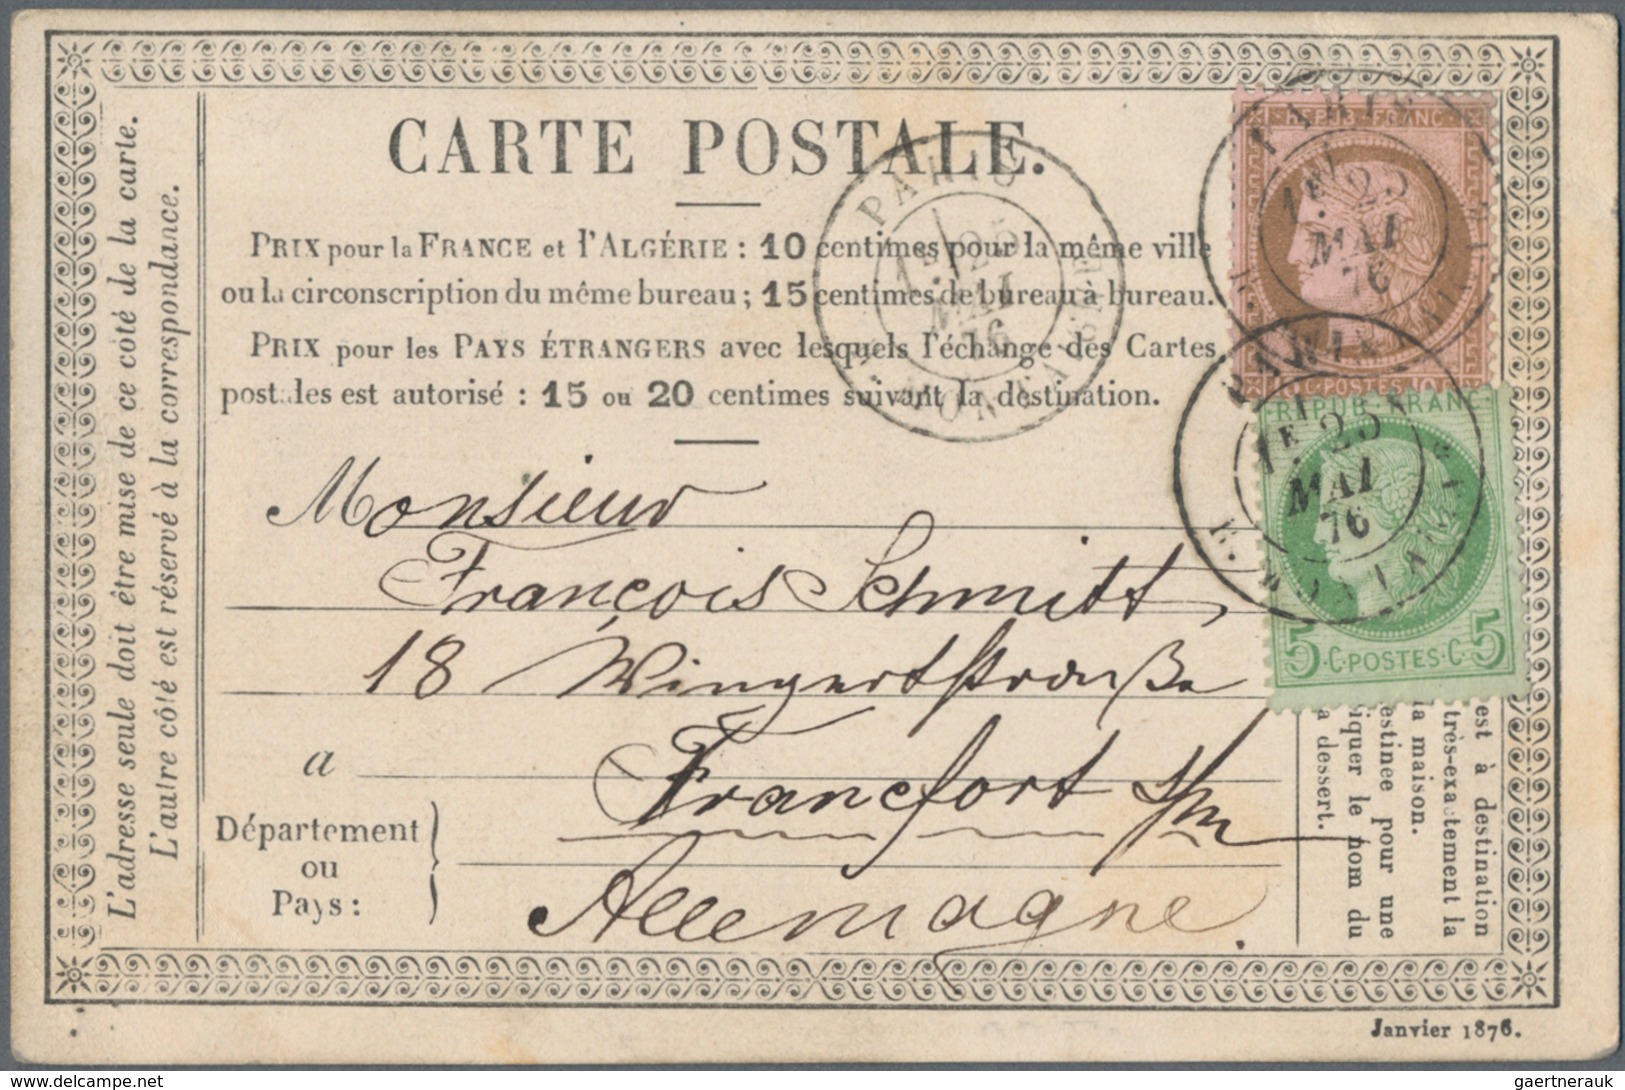 CARTE POSTALE.
PRIX pour la FRANCE et l'ALGÉRIE : 10 centimes pour la même ville
ou la circonscription du même bureau ; 15 centimes de bureau à bureau.
PRIX pour les PAYS ÉTRANGERS avec lesquels l'échange des Cartes
postales est autorisé : 15 ou 20 centimes suivant la destination.
L'adresse seule doit être mise de ce côté de la carte.
L'autre côté est réservé à la correspondance.
PARIS
1E 25
MAI
76
R. MONTAIGNE
REPUB FRANC
10 C POSTES 10 C
PARIS
1E 25
MAI
76
REPUB FRANC
5 C POSTES C 5
PARIS
1E 25
MAI
76
Monsieur
François Schmitt,
18 Wingertstraße
a Francfort s/m
Département
ou
Pays :
Allemagne.
est à destination
très-exactement la
la maison.
estinée pour une
iquer le nom du
a dessert.
Janvier 1876.
delcampe.net
gaertnerauk